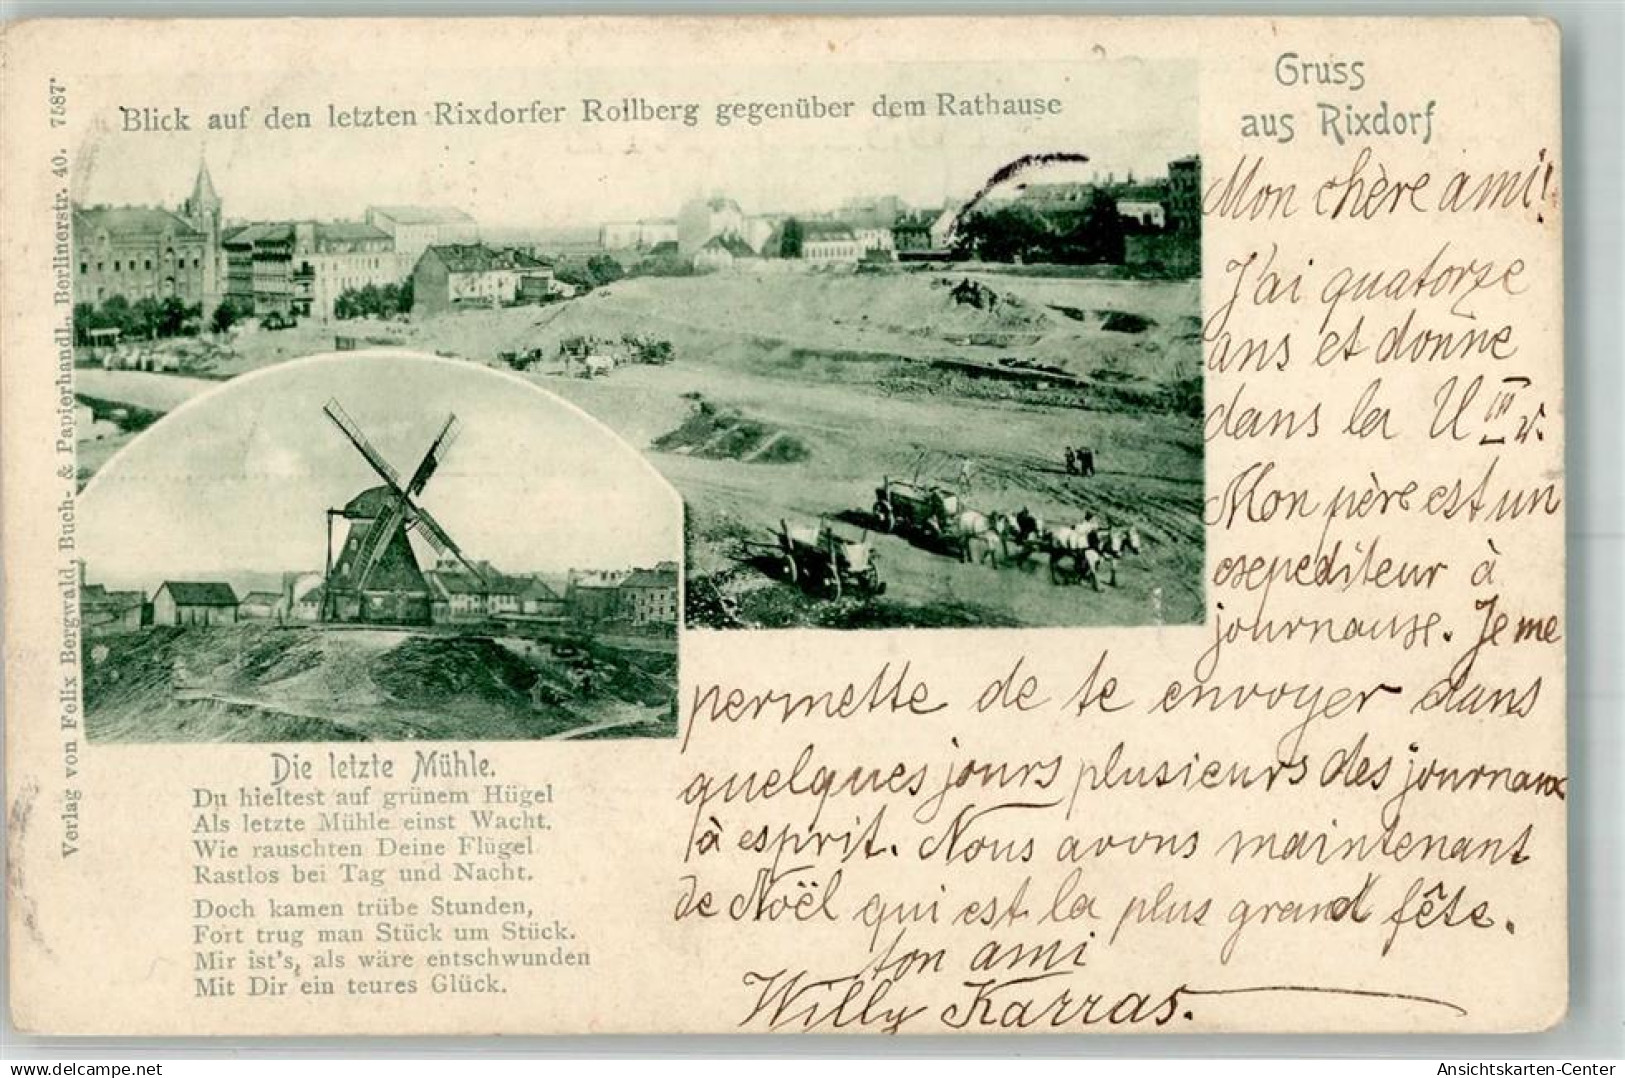 Gruss
aus Rixdorf
Blick auf den letzten Rixdorfer Rollberg gegenüber dem Rathause
Verlag von Felix Bergwald, Buch- & Papierhandl., Berlinerstr. 40. 7587*
Mon chère ami!
J'ai quatorze
ans et donne
dans la U III
Mon père est un
à
journause. Je me
permette de te envoyer dans
quelques jours plusieurs des journaux
à esprit. Nous avons maintenant
de Noël qui est la plus grand fête.
ton ami
Willy Karras.
Die letzte Mühle.
Du hieltest auf grünem Hügel
Als letzte Mühle einst Wacht.
Wie rauschten Deine Flügel
Rastlos bei Tag und Nacht.
Doch kamen trübe Stunden,
Fort trug man Stück um Stück.
Mir ist's, als wäre entschwunden
Mit Dir ein teures Glück.
https://www.delcampe.net
Ansichtskarten-Center